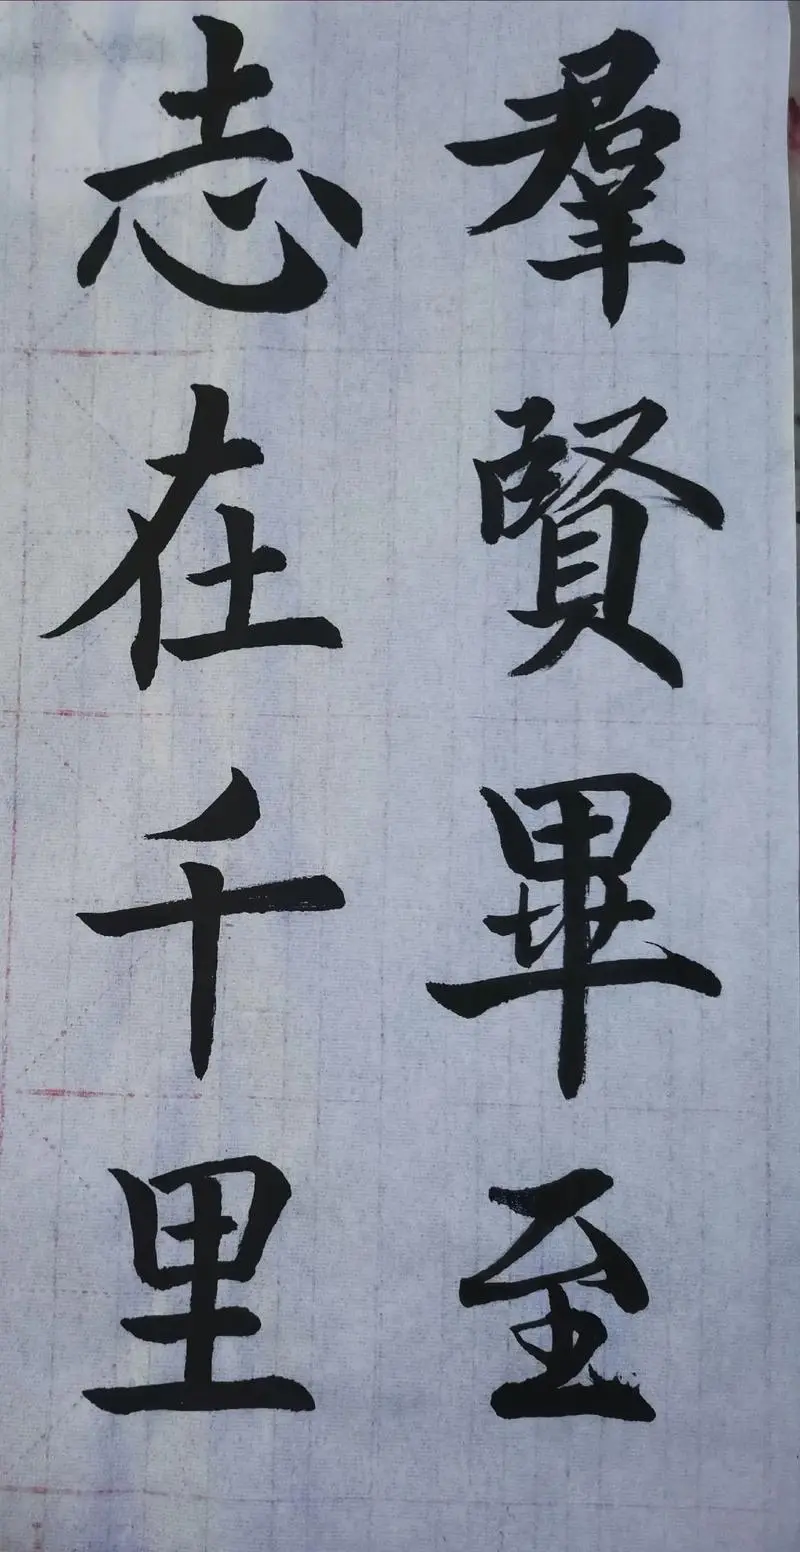 羣賢畢至
志在千里